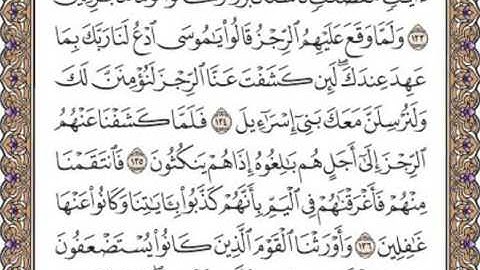 ﴿١٣٣﴾ وَلَمَّا وَقَعَ عَلَيْهِمُ ٱلرِّجْزُ قَالُوا۟ يَٰمُوسَى ٱدْعُ لَنَا رَبَّكَ بِمَا
عَهِدَ عِندَكَ ۖ لَئِن كَشَفْتَ عَنَّا ٱلرِّجْزَ لَنُؤْمِنَنَّ لَكَ
وَلَنُرْسِلَنَّ مَعَكَ بَنِىٓ إِسْرَٰٓءِيلَ ﴿١٣٤﴾ فَلَمَّا كَشَفْنَا عَنْهُمُ
ٱلرِّجْزَ إِلَىٰٓ أَجَلٍ هُم بَٰلِغُوهُ إِذَا هُمْ يَنكُثُونَ ﴿١٣٥﴾ فَٱنتَقَمْنَا
مِنْهُمْ فَأَغْرَقْنَٰهُمْ فِى ٱلْيَمِّ بِأَنَّهُمْ كَذَّبُوا۟ بِـَٔايَٰتِنَا وَكَانُوا۟ عَنْهَا
غَٰفِلِينَ ﴿١٣٦﴾ وَأَوْرَثْنَا ٱلْقَوْمَ ٱلَّذِينَ كَانُوا۟ يُسْتَضْعَفُونَ